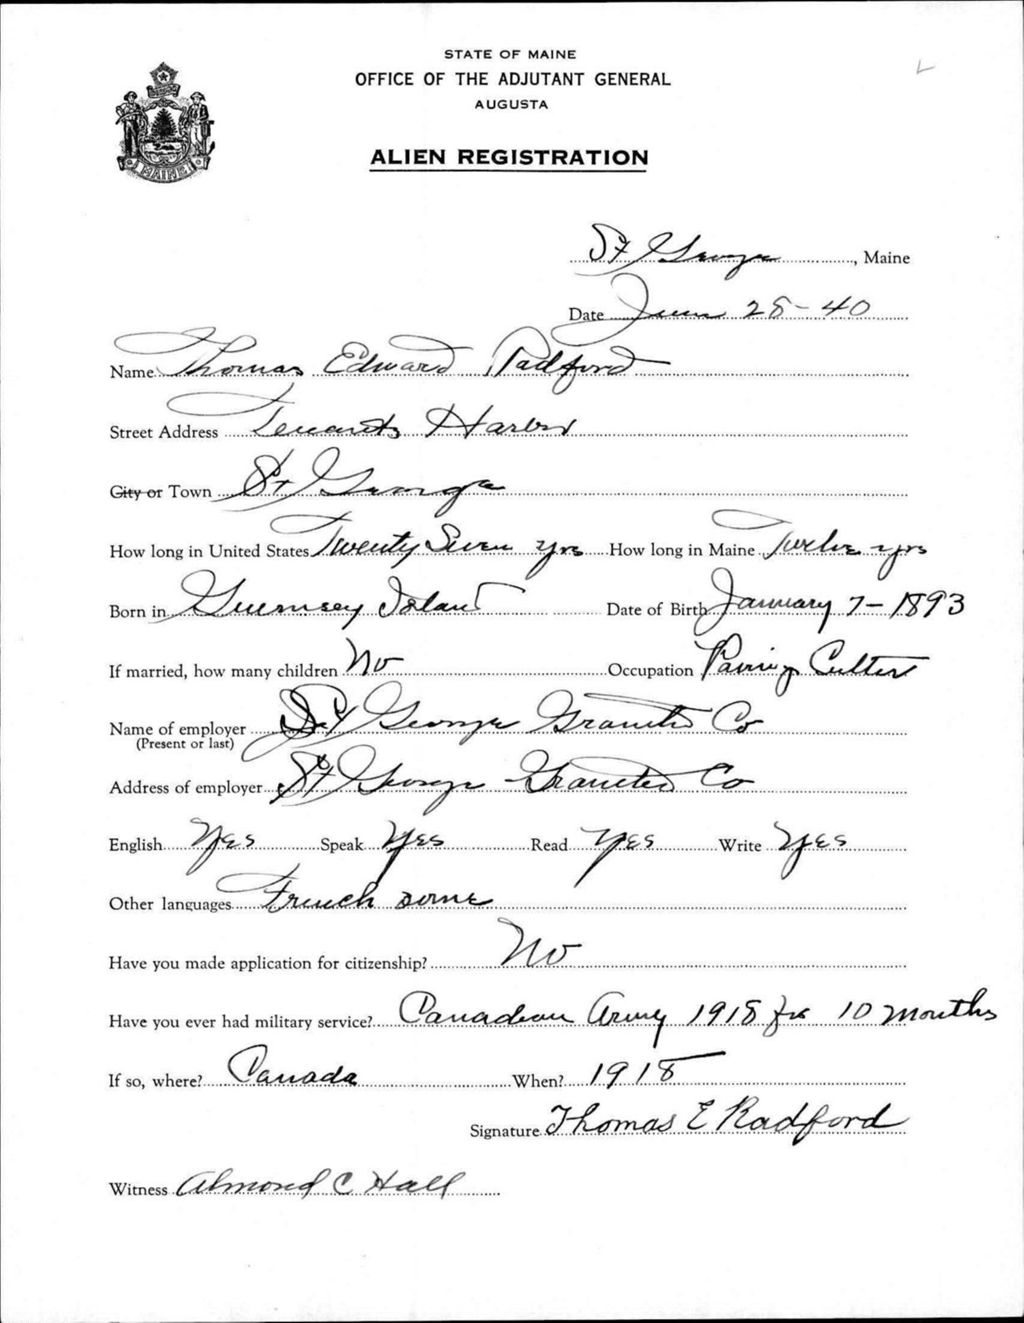 STATE OF MAINE
OFFICE OF THE ADJUTANT GENERAL
AUGUSTA
ALIEN REGISTRATION
MAINE
St George, Maine
Date June 28-40
Name Thomas Edward Radford
Street Address Tenants Harbor
City or Town St George
How long in United States Twenty Seven yrs How long in Maine Twelve yrs
Born in Guernsey Island Date of Birth January 7-1893
If married, how many children No Occupation Paving Cutter
Name of employer St George Granite Co
(Present or last)
Address of employer St George Granite Co
English Yes Speak Yes Read Yes Write Yes
Other languages French some
Have you made application for citizenship? No
Have you ever had military service? Canadean Army 1918 for 10 months
If so, where? Canada When? 1918
Signature Thomas E Radford
Witness Almond C Hall